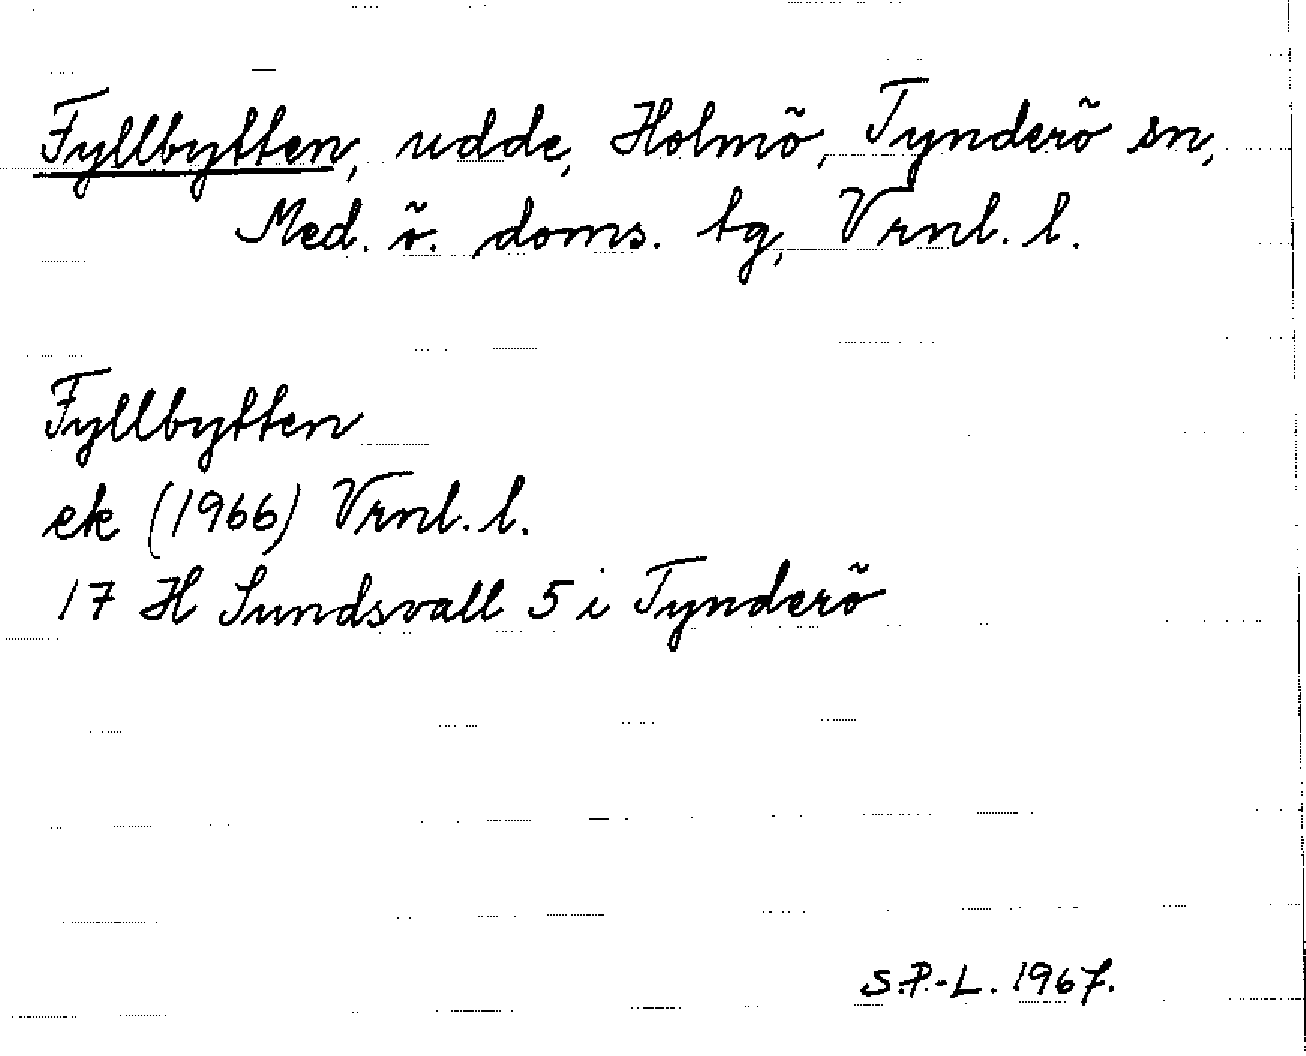 Fyllbytten, udde, Holmö, Tynderö sn,
Med. ö. doms. tg, Vrnl. l.
Fyllbytten
ek (1966) Vrnl. l.
17 H Sundsvall 5 i Tynderö
S.P.-L. 1967.